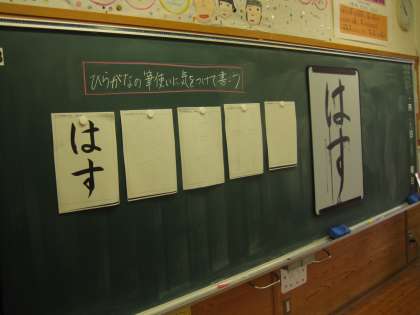 ひらがなの筆使いに気をつけて書こう
はす
はす